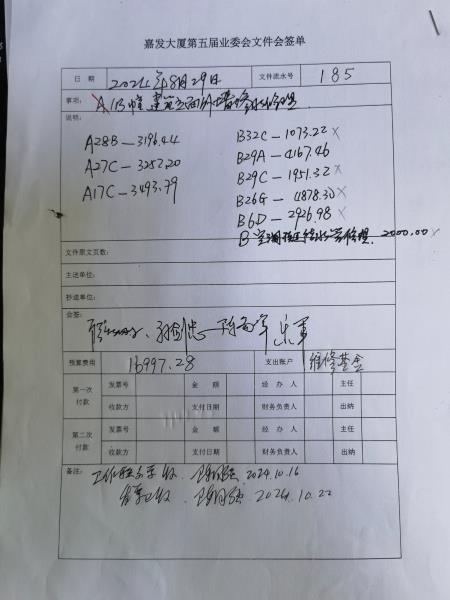 嘉发大厦第五届业委会文件会签单
日 期 2024年8月29日 文件流水号 185
事项: A/B幢建筑立面外墙 修理
说明:
A28B—3196.44 B32C—1073.22 X
A27C—3252.20 B29A—4167.46
A17C—3493.79 B29C—1951.32 X
B26G—4878.30 X
B6D—2926.98 X
B 修理. 2000.00 X
文件原文页数:
主送单位:
抄送单位:
会签:
预算费用 16997.28 支出账户 维修基金
第一次付款 发票号 金 额 经 办 人 主任
收款方 支付日期 财务负责人 出纳
第二次付款 发票号 金 额 经 办 人 主任
收款方 支付日期 财务负责人 出纳
备注: 工作联系单 收 2024.10.16
发票已收 2024.10.22